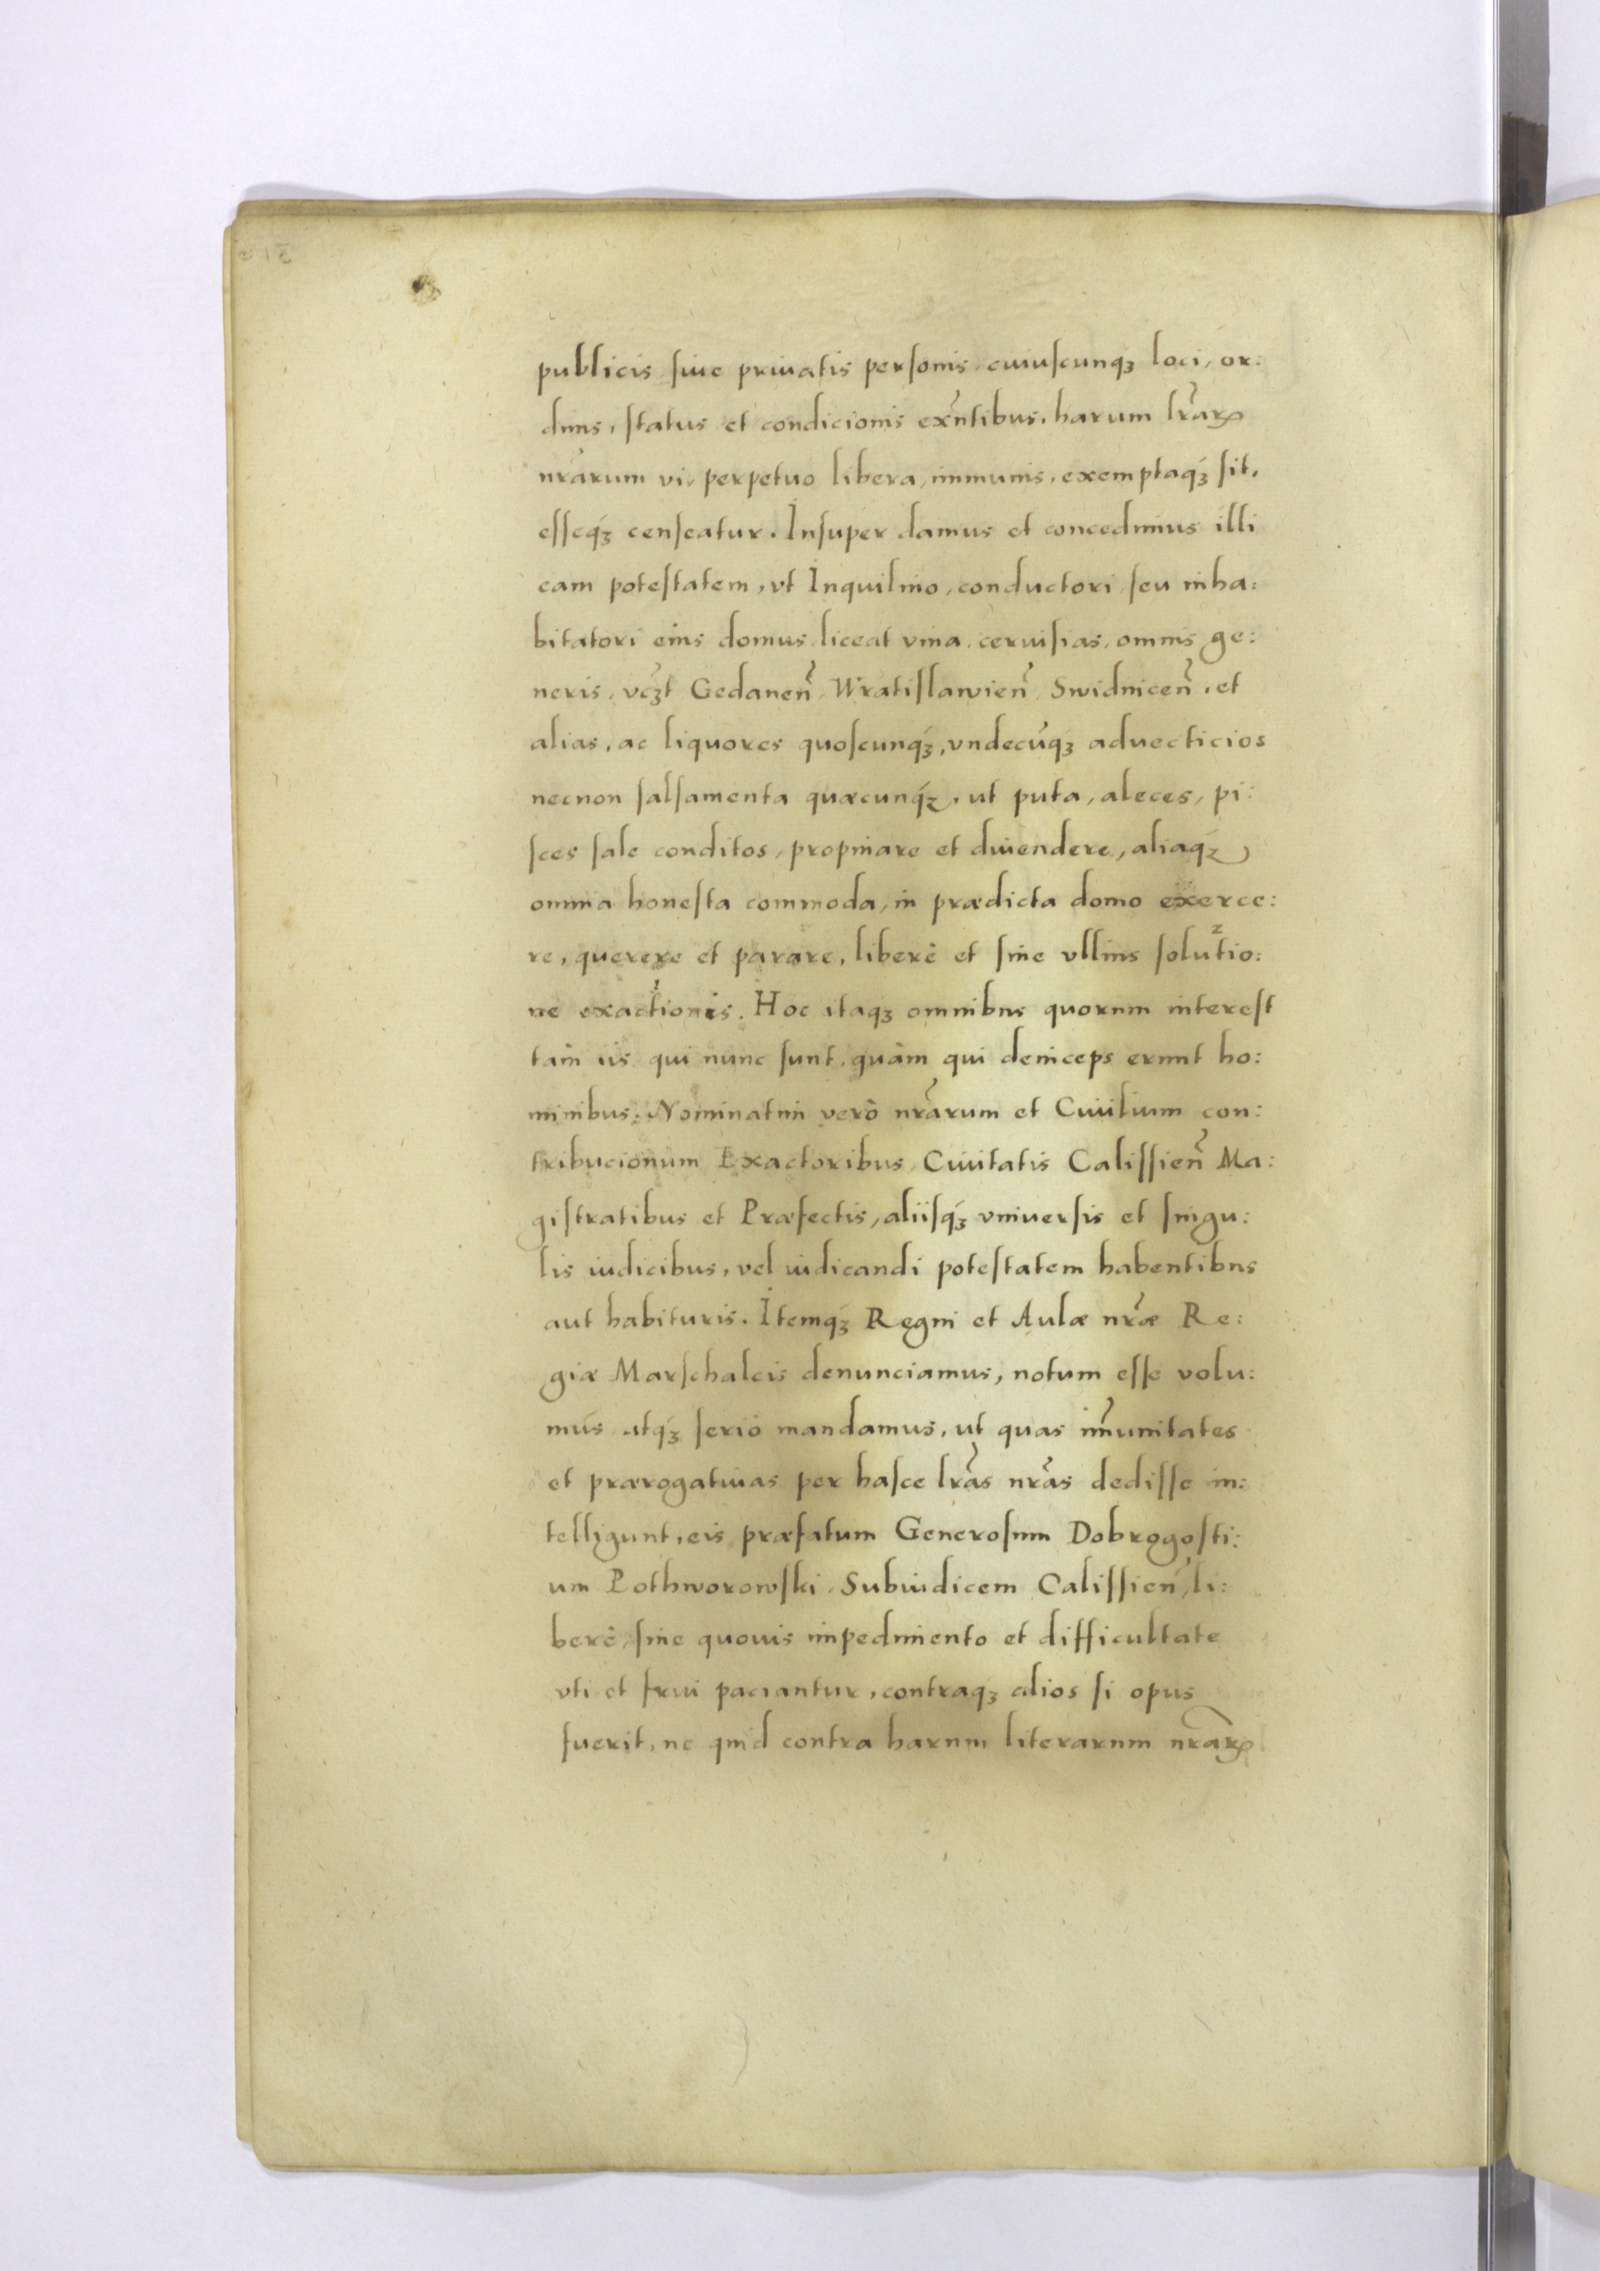 publicis, siue priuatis personis, cuiuscunqꝫ loci, or:
dinis, status et condicionis exñtibus, harum lr̃arꝝ
nr̃arum vi, perpetuo libera, immunis, exemptaqꝫ sit,
esseqꝫ censeatur. Insuper damus et concedimus illi
eam potestatem, vt Inquilino, conductori, seu inha:
bitatori eius domus liceat vina, ceruisias, omnis ge:
neris, vcꝫt Gedaneñ, Wratislawieñ, Swidniceñ, et
alias, ac liquores quoscunqꝫ, vndecūqꝫ aduecticios
necnon salsamenta quæcunqꝫ, ut puta, aleces, pi:
sces sale conditos, propinare et diuendere, aliaqꝫ
omnia honesta commoda, in prædicta domo exerce:
re, querere et parare, liberè et sine vllius solutio:
ne exactionis. Hoc itaqꝫ omnibus quorum interest
tam iis qui nunc sunt, quàm qui deinceps erunt ho:
minibus. Nominatim verò nr̃arum et Ciuilium con:
tribucionum Exactoribus, Ciuitatis Calissieñ Ma:
gistratibus et Præfectis, aliisqꝫ vniuersis et singu:
lis iudicibus, vel iudicandi potestatem habentibus
aut habituris. Itemqꝫ Regni et Aulæ nr̃æ Re:
giæ Marschalcis denunciamus, notum esse volu:
mus atqꝫ serio mandamus, ut quas im̃unitates
et prærogatiuas per hasce lr̃as nr̃as dedisse in:
telligunt, eis præfatum Generosum Dobrogosti:
um Pothworowski, Subiudicem Calissieñ, li:
berè, sine quouis impedimento et difficultate
vti et frui paciantur, contraqꝫ alios si opus
fuerit, ne quid contra harum literarum nr̃arꝝ